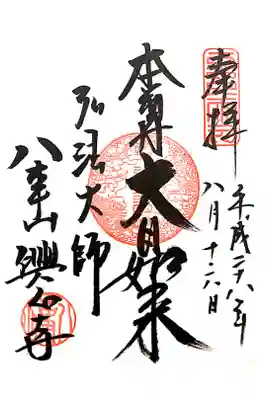 奉拝
平成二十八年
八月十六日
本尊 大日如来
弘法大師
八事山 興正寺